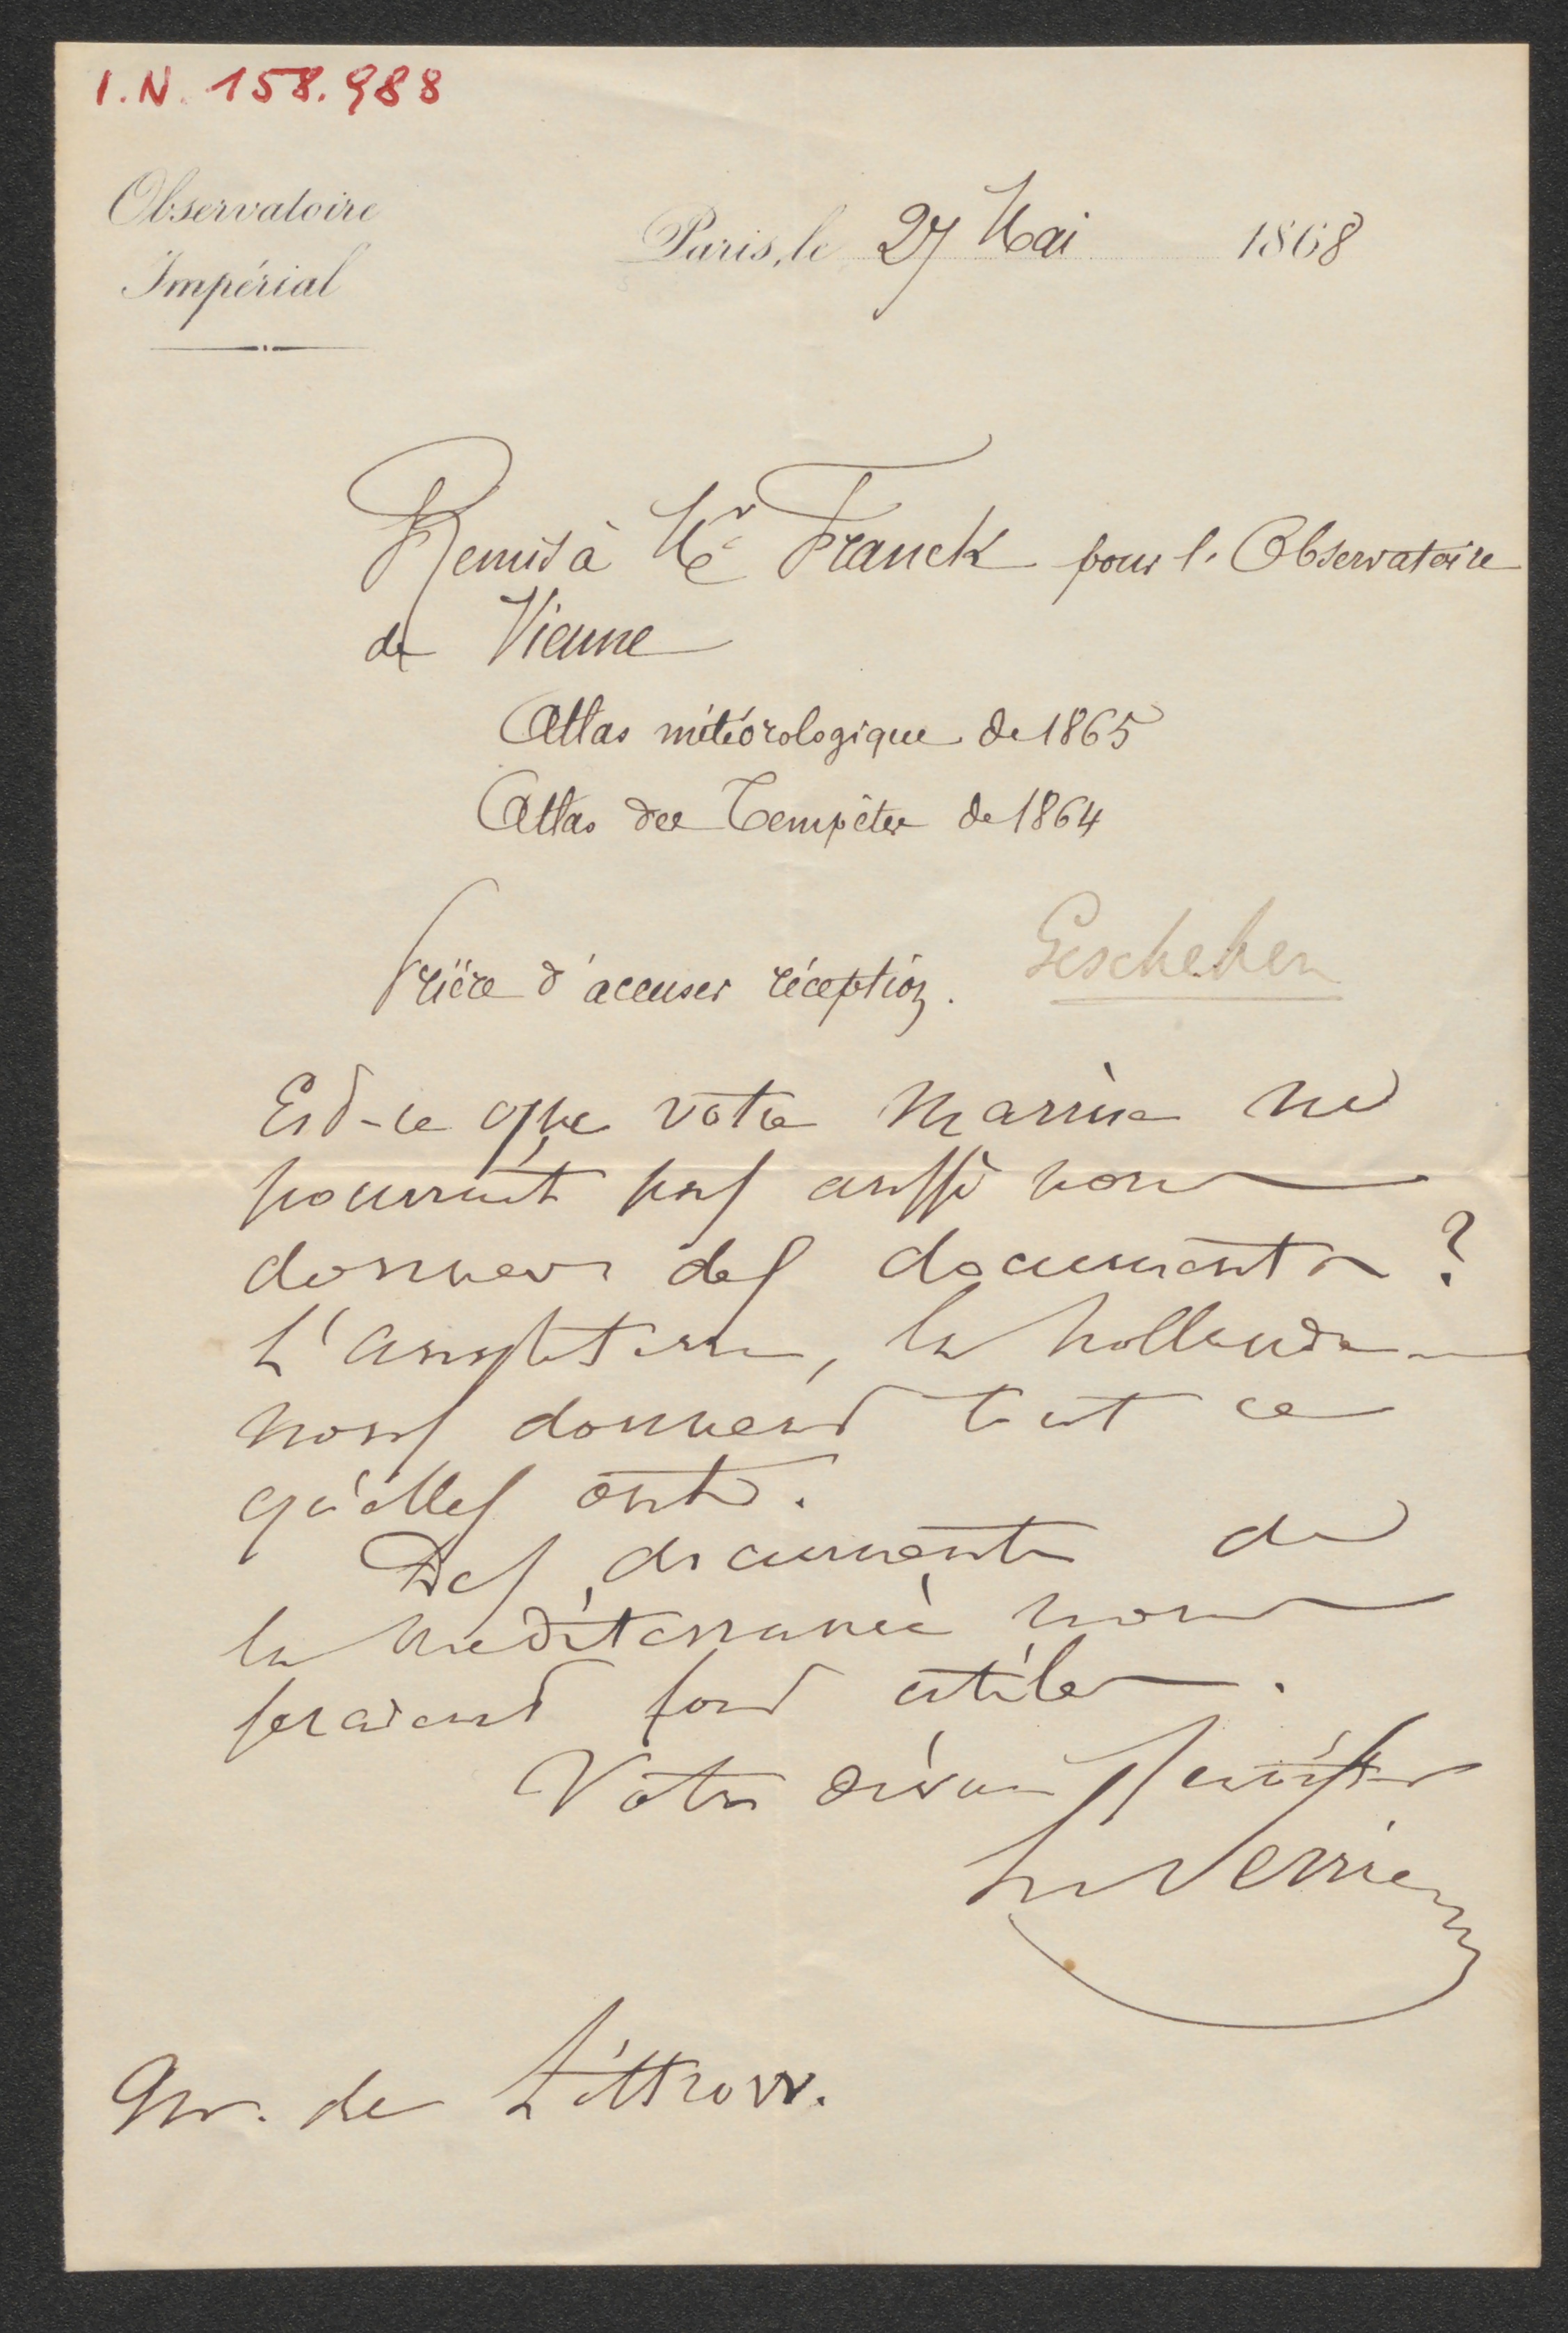 I.N. 158.988
Observatoire
Impérial
Paris, le 27 Mai 1868
Remis à Mr Franck pour l'Observatoire
de Vienne
Atlas météorologique de 1865
Atlas des Tempêtes de 1864
Prière d'accuser réception.
Geschehen
Est-ce que votre marine ne
pourrait pas aussi nous
donner des documents ?
L'angleterre, la hollande
nous donnent tout ce
qu'elles ont.
Des documents de
la méditerranée nous
seraient fort utiles.
Votre dévoué
Le Verrier
Mr. de Littrow.